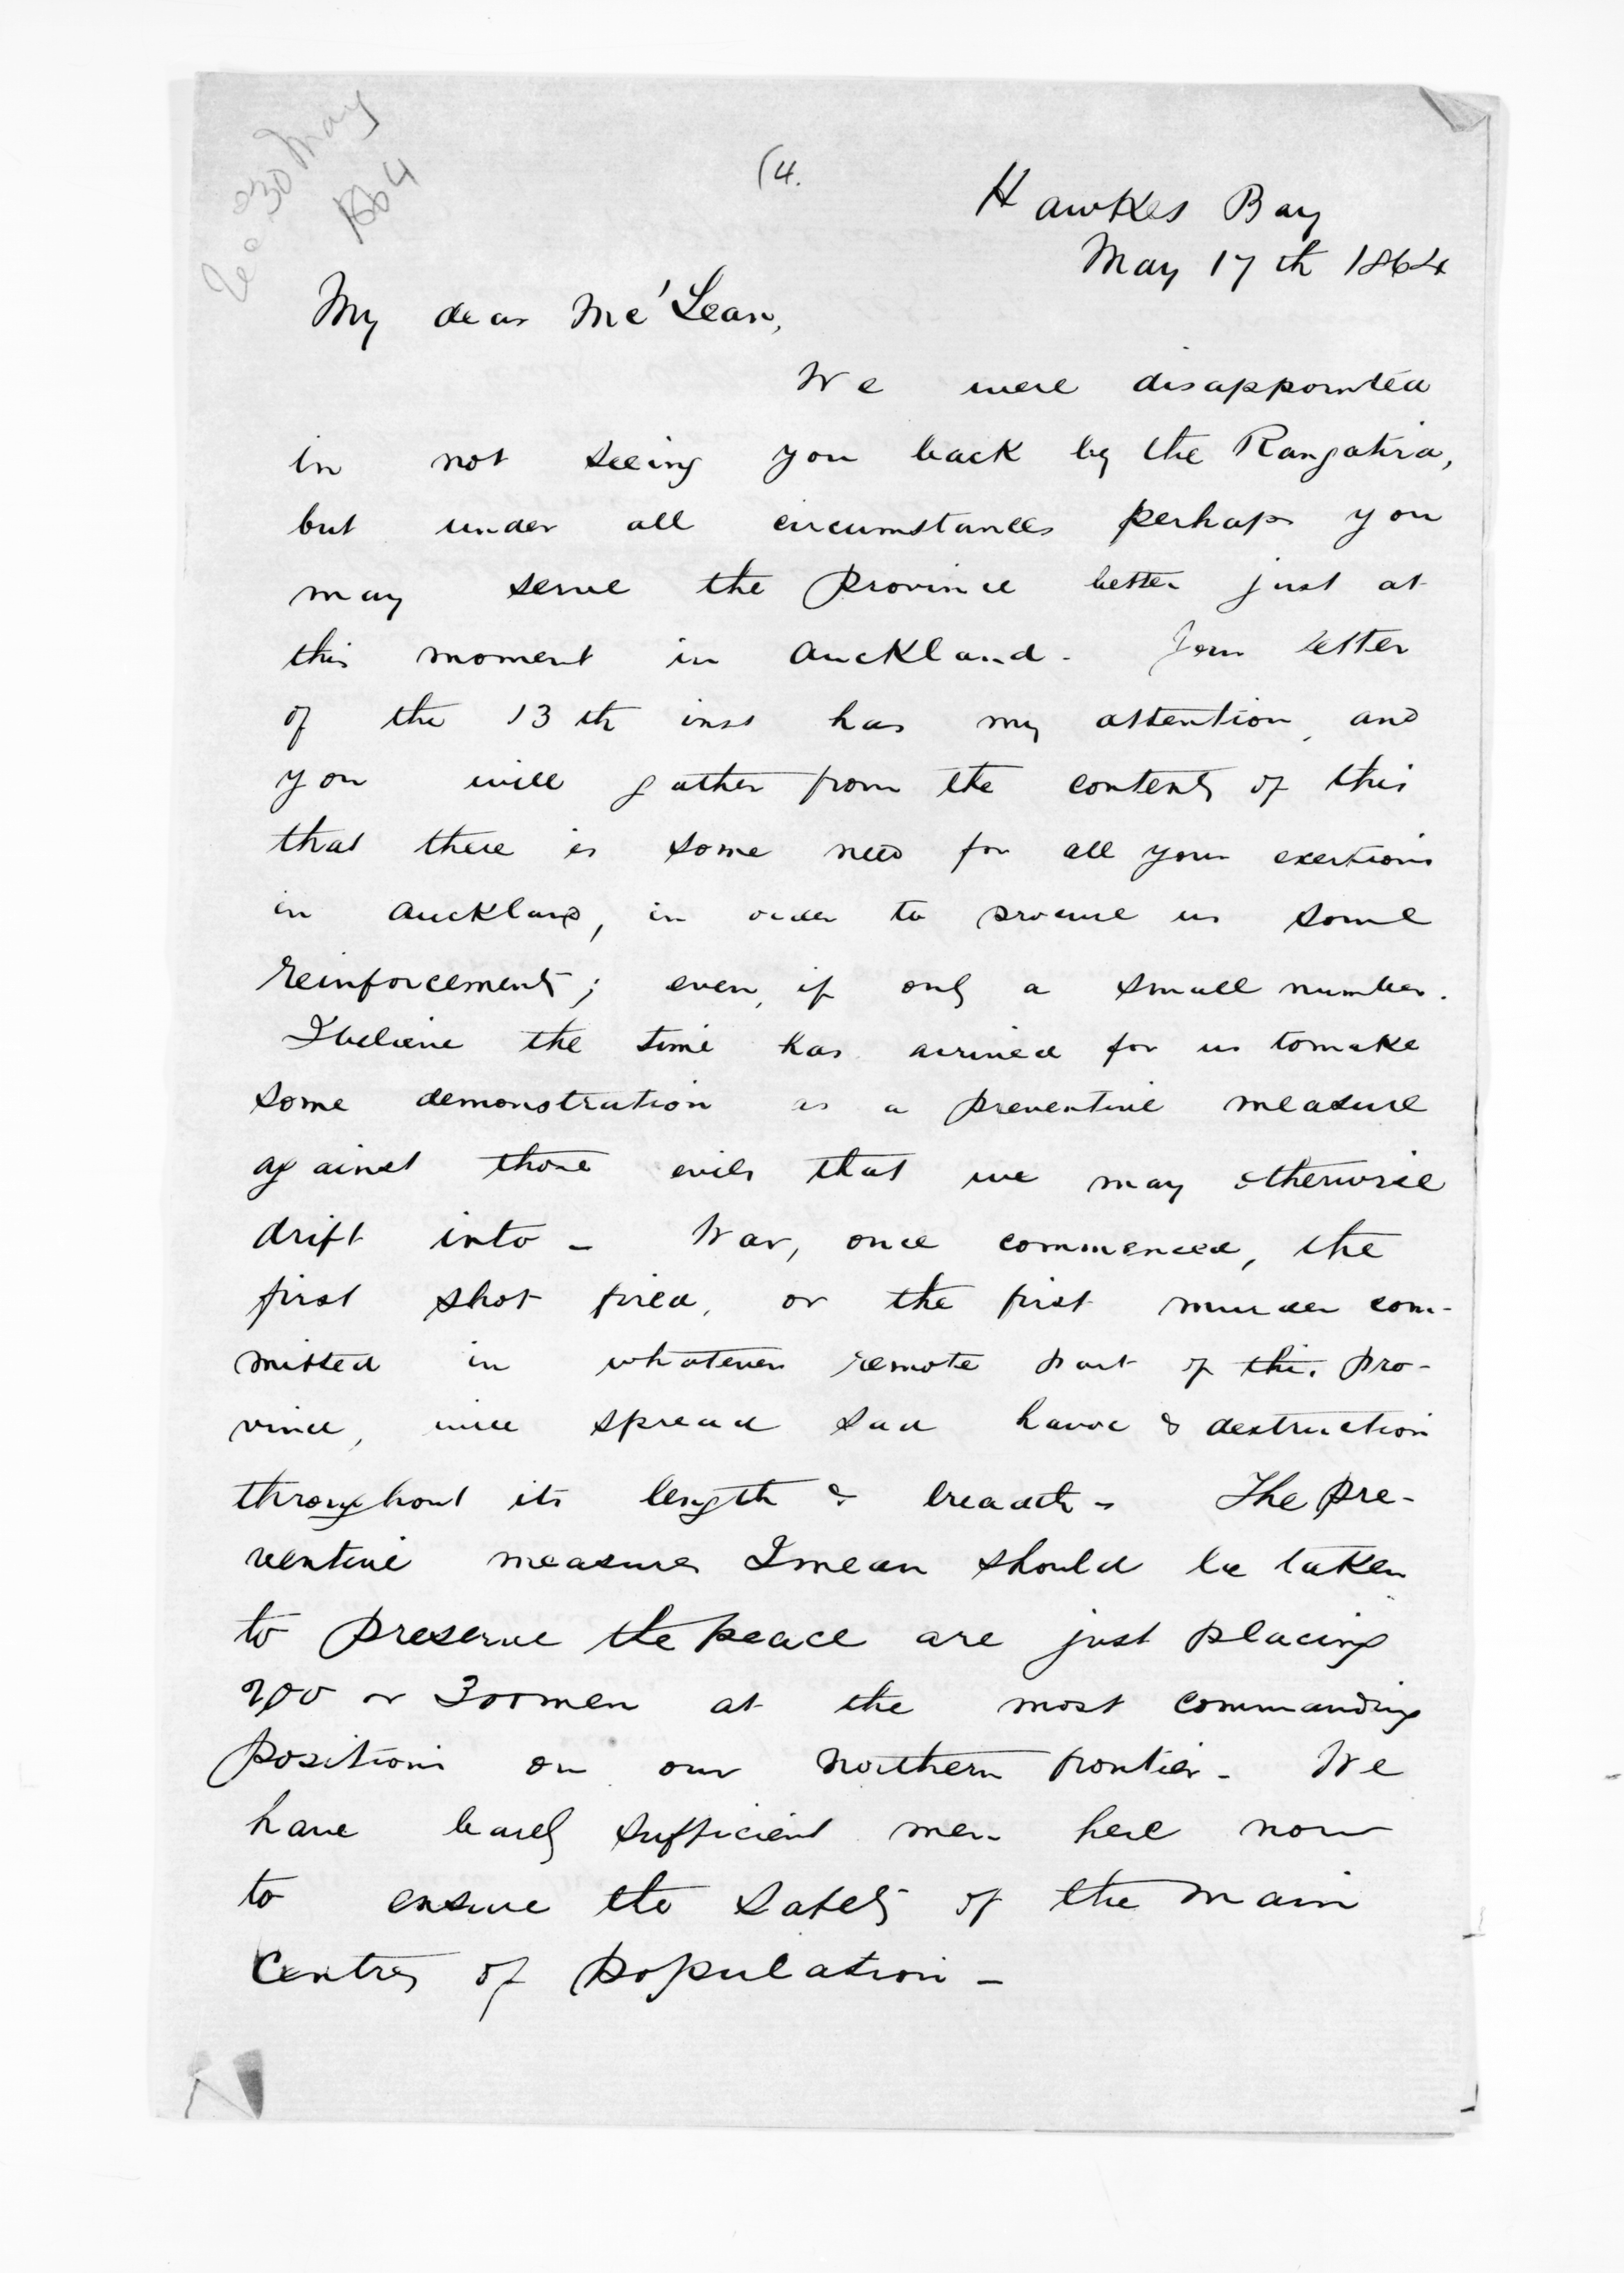 Rec 30 May
1864
(4.
Hawkes Bay
May 17th 1864
My dear Mc'Lean,
We were disappointed
in not seeing you back by the Rangatira,
but under all circumstances perhaps you
may serve the province better just at
this moment in Auckland. Your letter
of the 13th inst has my attention, and
you will gather from the contents of this
that there is some need for all your exertions
in Auckland, in order to procure us some
reinforcements; even, if only a small number.
I believe the time has arrived for us to make
some demonstration as a preventive measure
against those evils that we may otherwise
drift into - War, once commenced, the
first shot fired, or the first murder com-
mitted in whatever remote part of the pro-
vince, will spread sad havoc & destruction
throughout its length & breadth - The pre-
ventive measures I mean should be taken
to preserve the peace are just placing
200 or 300 men at the most commanding
positions on our northern frontier - We
have barely sufficient men here now
to ensure the safety of the main
Centres of population -